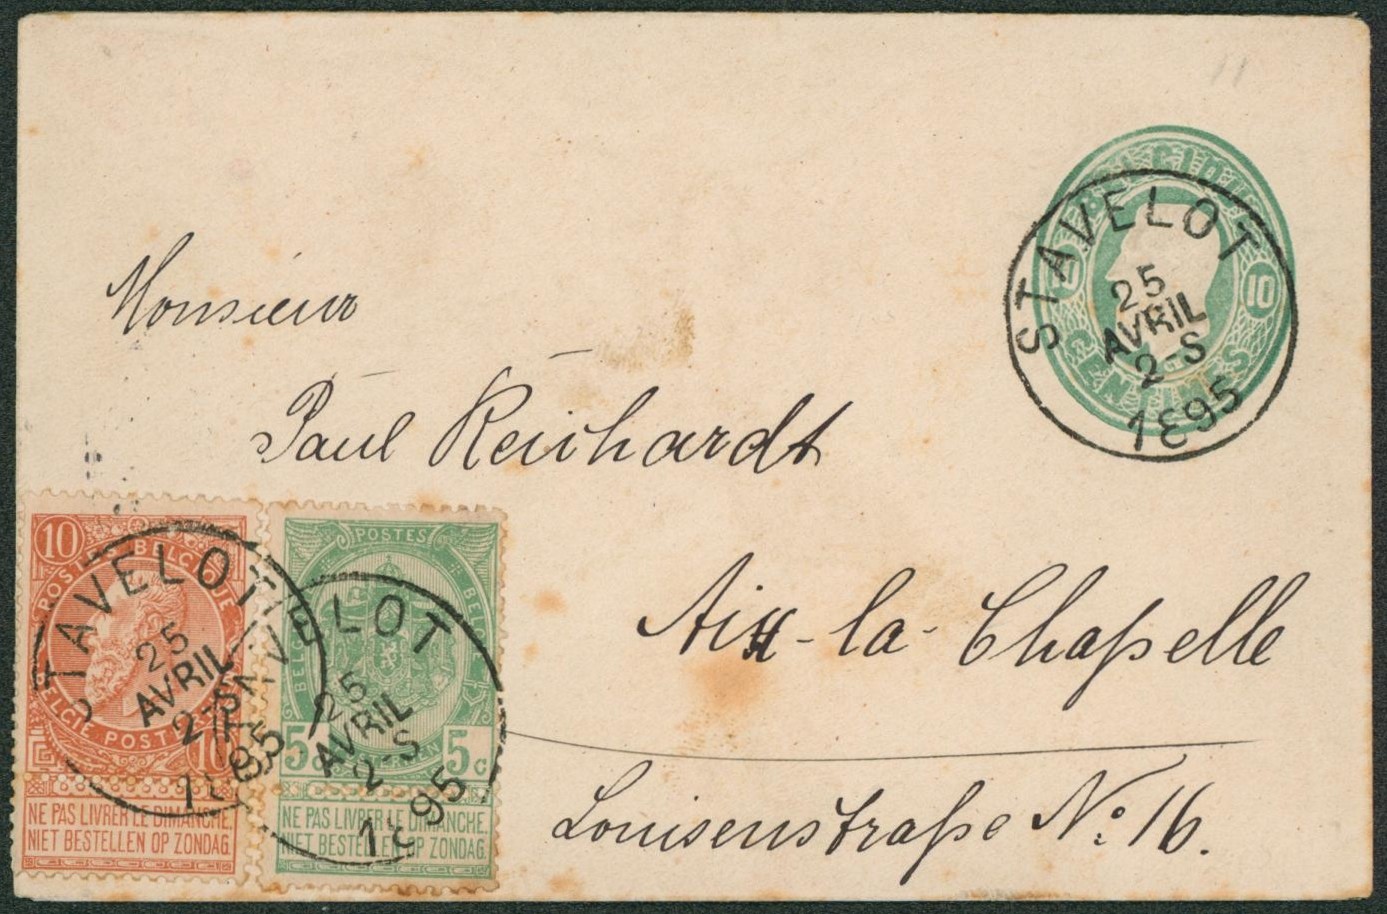 BELGIQUE
10 10
CENTIMES
STAVELOT
25
AVRIL
2-S
1895
Monsieur
Paul Reichardt
Aix-la-Chapelle
Louisenstraße No 16.
10
POSTES BELGIQUE
BELGIE POSTERIJEN
10
NE PAS LIVRER LE DIMANCHE.
NIET BESTELLEN OP ZONDAG
STAVELOT
25
AVRIL
2-S
1895
POSTES
BELGIQUE
BELGIE
5c 5c
NE PAS LIVRER LE DIMANCHE.
NIET BESTELLEN OP ZONDAG
STAVELOT
25
AVRIL
2-S
1895